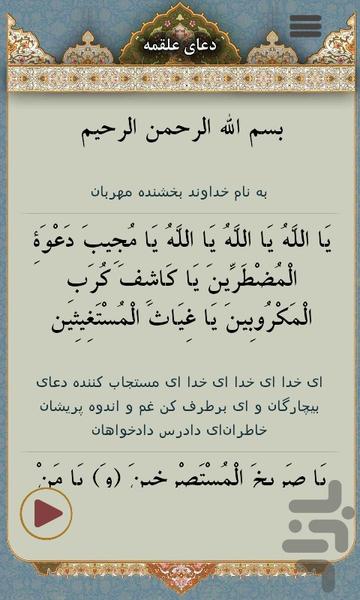 دعای علقمه
بسم الله الرحمن الرحیم
به نام خداوند بخشنده مهربان
يَا اللَّهُ يَا اللَّهُ يَا اللَّهُ يَا مُجِيبَ دَعْوَةِ
الْمُضْطَرِّينَ يَا كَاشِفَ كُرَبِ
الْمَكْرُوبِينَ يَا غِيَاثَ الْمُسْتَغِيثِينَ
ای خدا ای خدا ای خدا ای مستجاب کننده دعای
بیچارگان و ای برطرف کن غم و اندوه پریشان
خاطران‌ای دادرس دادخواهان
يَا صَرِيخَ الْمُسْتَصْرِخِينَ (وَ) يَا مَنْ
بازار